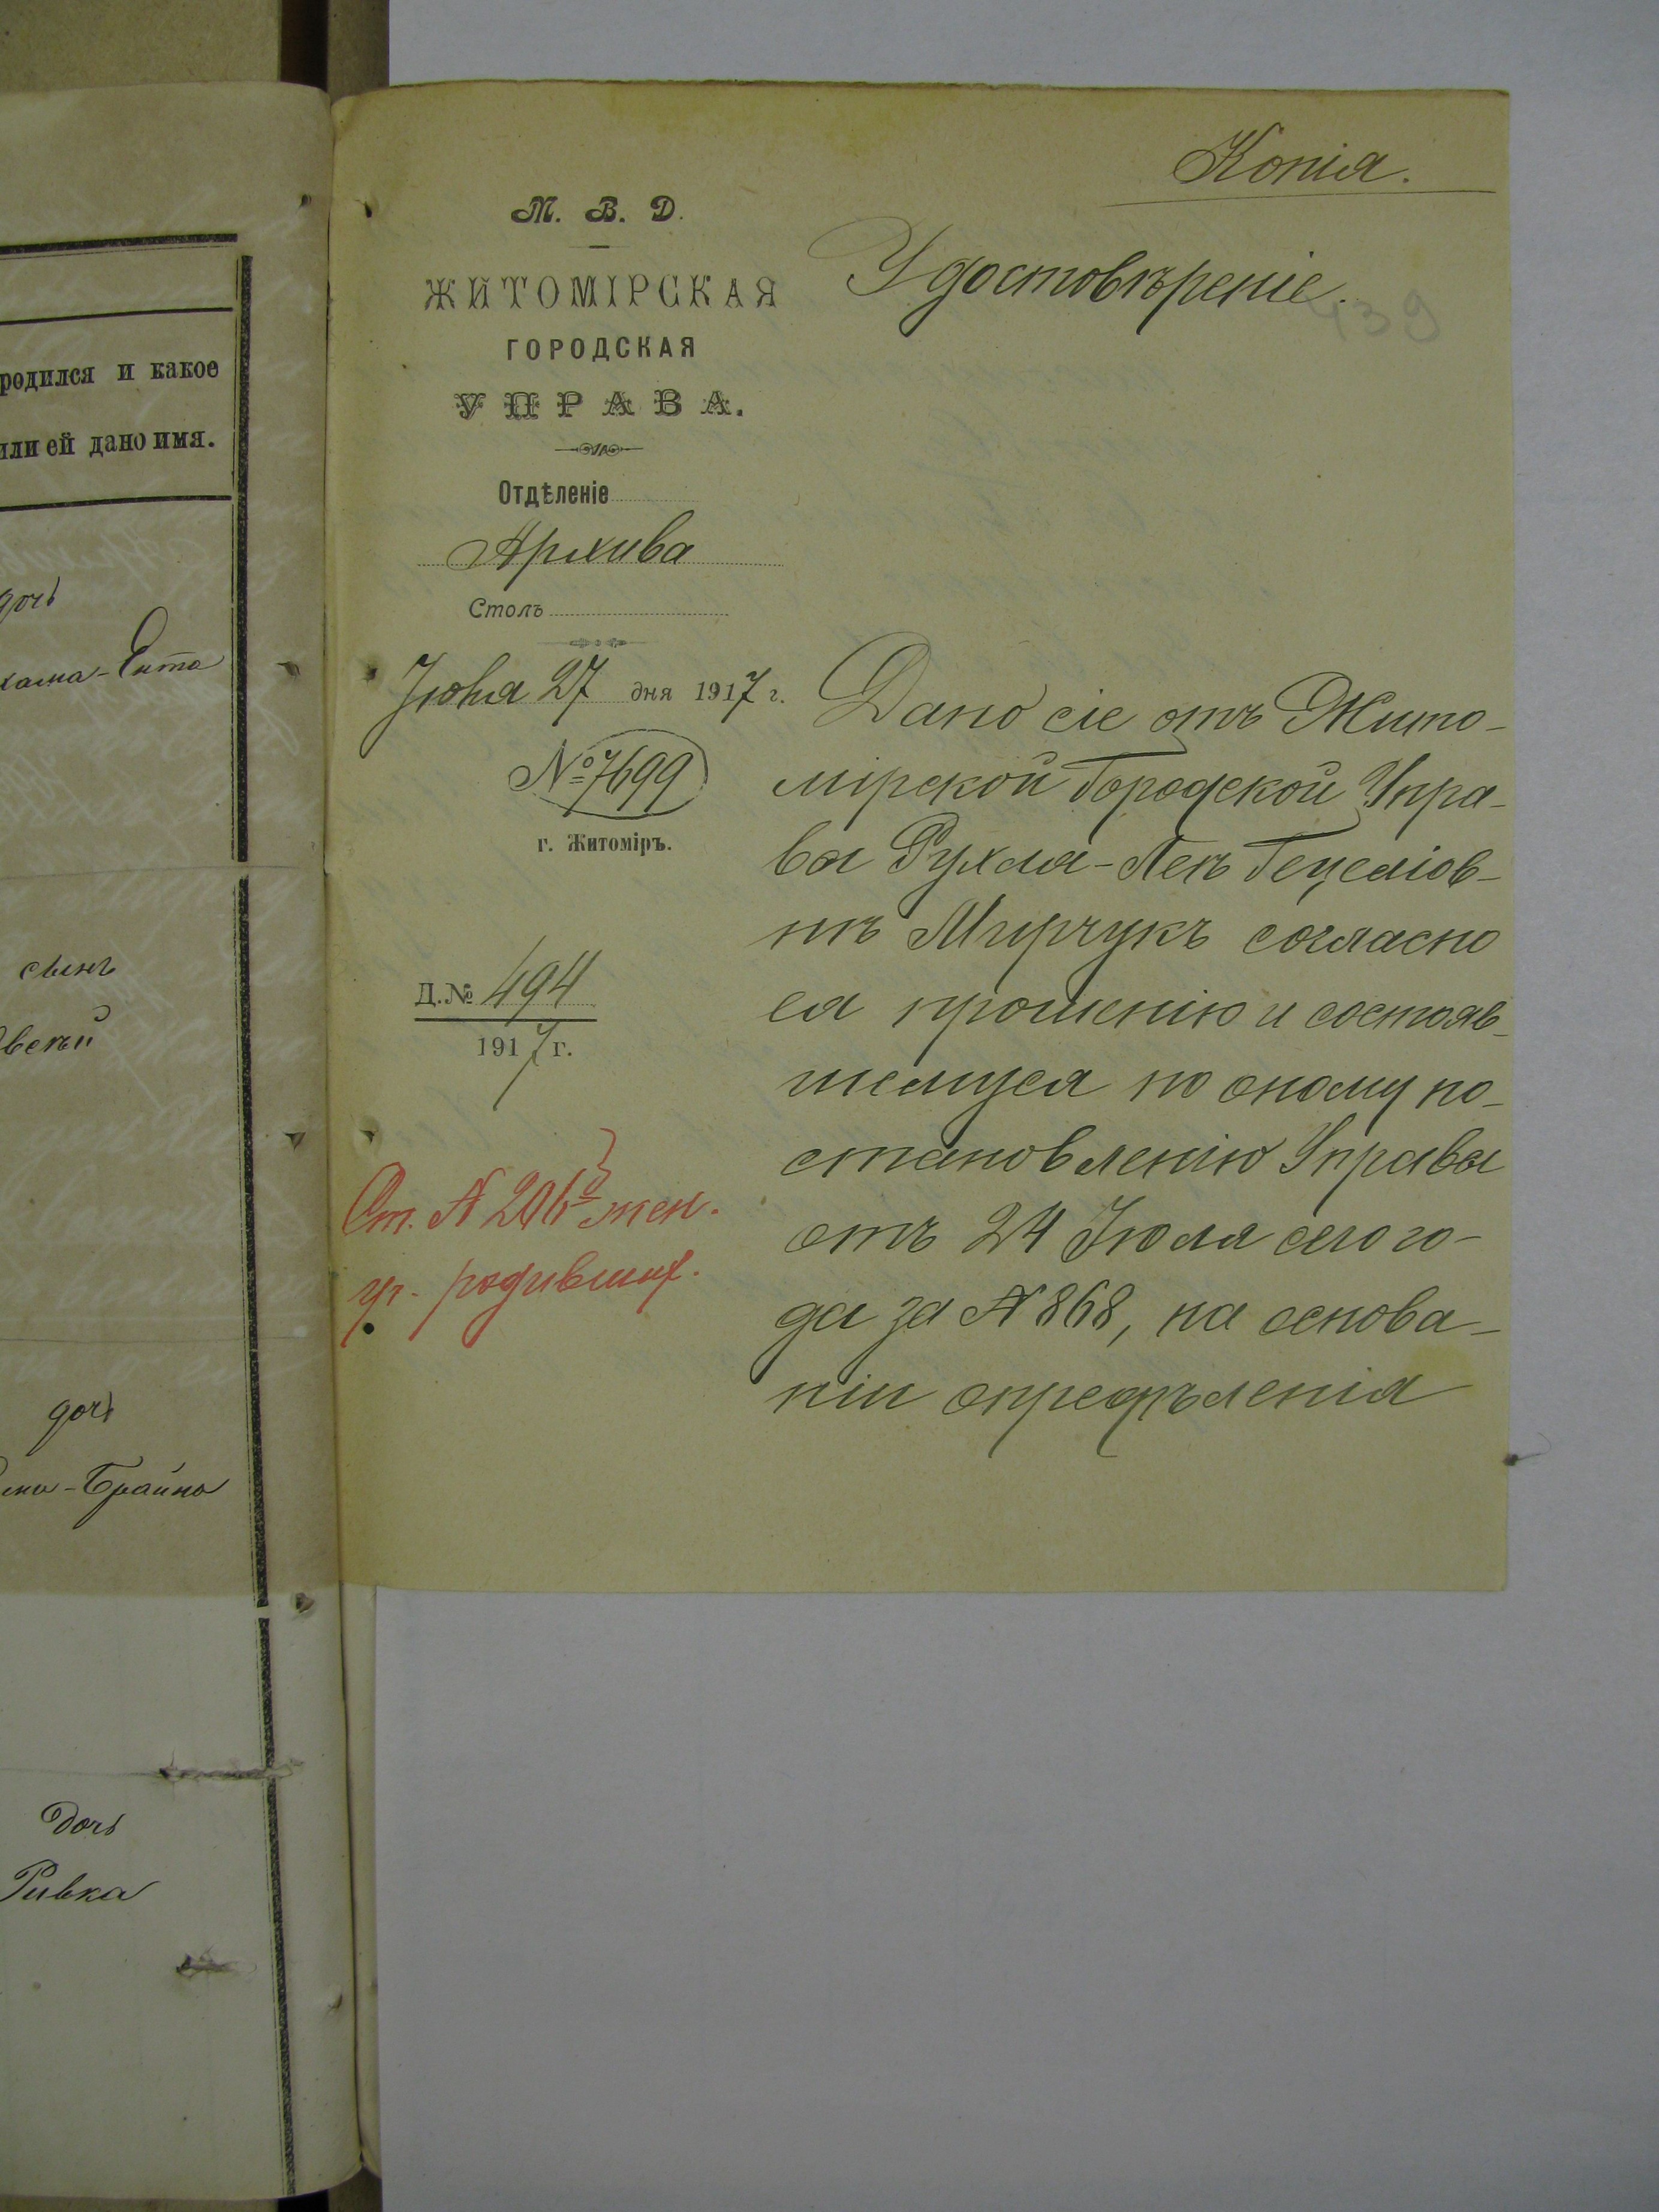 родился и какое
или ей дано имя.
дочь
сынъ
дочь
Брайна
дочь
Ривка
Копія.
М. В. Д.
ЖИТОМІРСКАЯ
ГОРОДСКАЯ
УПРАВА.
Отдѣленіе
Архива
Столъ
27 дня 1917 г.
№ 7699
г. Житоміръ.
Д. № 494
1917 г.
Ст. № 206 жен.
родивших.
Удостовѣреніе.
439
Дано сіе отъ Жито-
мірской Городской Упра-
вы Рухля-Леѣ Гецеліов-
нѣ Мирчукъ согласно
ея прошенію и состояв-
шемуся по оному по-
становленію Управы
отъ 24 Іюля сего го-
да за № 868, на основа-
ніи опредѣленія